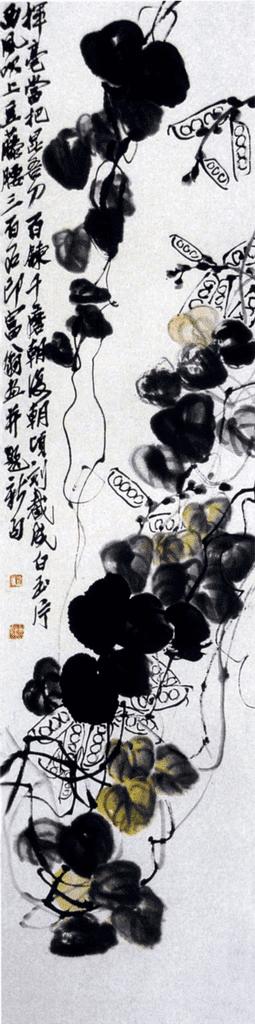 揮毫當把昆吾刀百鍊千磨朝復朝頃刻裁成白玉片
西風吹上豆藤腰三百石印富翁畫并題新句